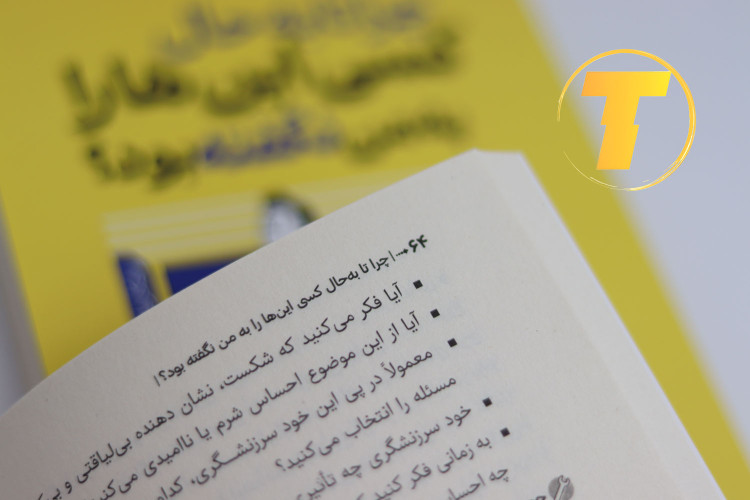 چرا تا به حال
کسی این ها را
به من نگفته بود؟
۶۴ | چرا تا به‌حال کسی این‌ها را به من نگفته بود؟ |
▪ آیا فکر می‌کنید که شکست، نشان دهنده بی‌لیاقتی و
▪ آیا از این موضوع احساس شرم یا ناامیدی می‌کنید
▪ معمولاً در پی این خود سرزنشگری،
مسئله را انتخاب می‌کنید؟
▪ خود سرزنشگری چه تأثیری
▪ به زمانی فکر کنید
چه احساس
T